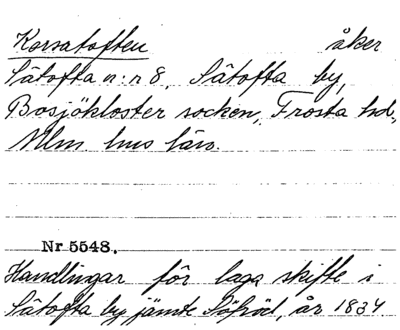 Korsatoften åker
Såtofta n:r 8, Såtofta by,
Bosjökloster socken, Frosta hd.,
Mlm. hus län.
Nr 5548.
Handlingar för laga skifte i
Såtofta by jämte Söfröd, år 1834